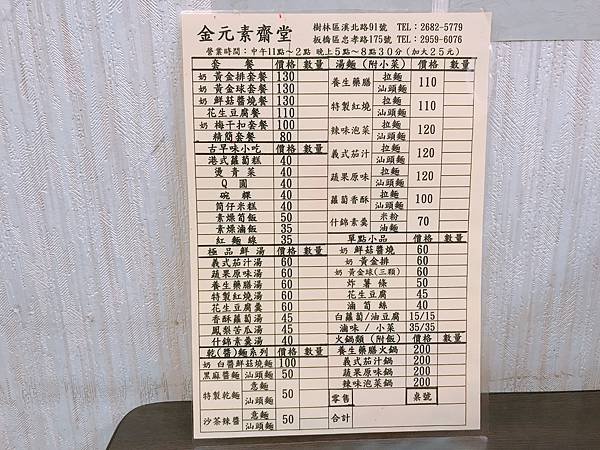 金元素齋堂
樹林區溪北路91號 TEL:2682-5779
板橋區忠孝路175號 TEL:2959-6076
營業時間:中午11點~2點 晚上5點~8點30分(加大25元)
套 餐 價格 數量
奶 黃金排套餐 130
奶 黃金球套餐 130
奶 鮮菇醬燒餐 130
花生豆腐餐 110
奶 梅干扣套餐 100
精簡套餐 80
古早味小吃 價格 數量
港式蘿蔔糕 40
燙青菜 40
Q圓 40
碗粿 40
筒仔米糕 40
素燥筍飯 50
素燥滷飯 35
紅麵線 35
極品鮮湯 價格 數量
義式茄汁湯 60
蔬果原味湯 60
養生藥膳湯 60
特製紅燒湯 60
花生豆腐羹 60
香酥蘿蔔湯 45
鳳梨苦瓜湯 45
什錦素羹湯 40
乾(醬)麵系列 價格 數量
奶 白醬鮮菇燒麵 100
黑麻醬麵 汕頭麵 50
特製乾麵 意麵 汕頭麵 50
沙茶辣醬 意麵 汕頭麵 50
湯麵(附小菜) 價格 數量
養生藥膳 拉麵 汕頭麵 110
特製紅燒 拉麵 汕頭麵 110
辣味泡菜 拉麵 汕頭麵 120
義式茄汁 拉麵 汕頭麵 120
蔬果原味 拉麵 汕頭麵 120
蘿蔔香酥 拉麵 汕頭麵 100
什錦素羹 米粉 油麵 70
單點小品 價格 數量
奶 鮮菇醬燒 60
奶 黃金排 60
奶 黃金球(三顆) 60
炸薯條 50
花生豆腐 45
滷筍絲 40
白蘿蔔/油豆腐 15/15
滷味/小菜 35/35
火鍋類(附飯) 價格 數量
養生藥膳火鍋 200
義式茄汁鍋 200
蔬果原味鍋 200
辣味泡菜鍋 200
零售 桌號
合計